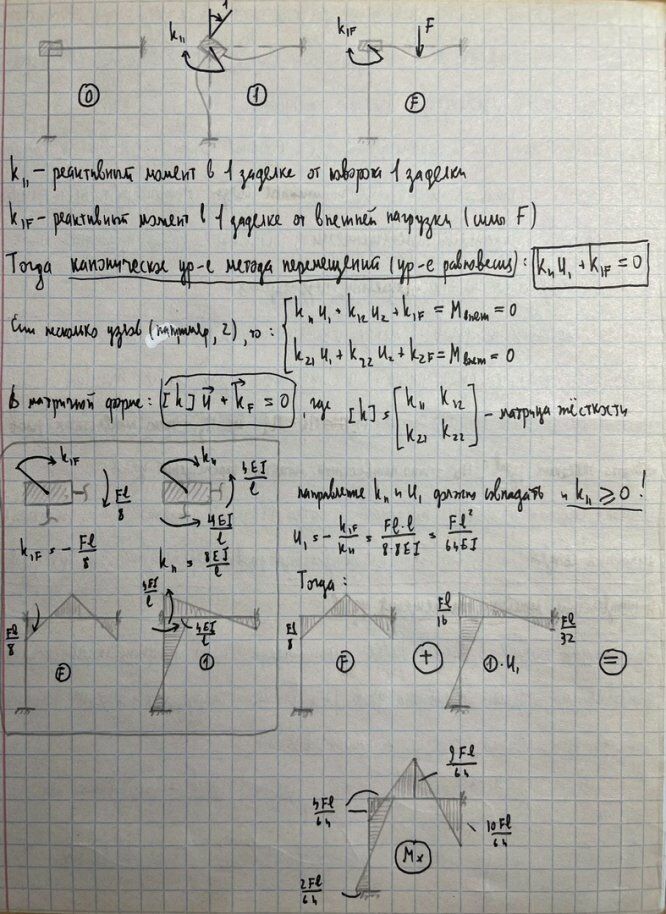 k₁₁ 1 k₁F F
0 1 F
k₁₁ – реактивный момент в 1 заделке от поворота 1 заделки
k₁F – реактивный момент в 1 заделке от внешней нагрузки (силы F)
Тогда каноническое ур-е метода перемещений (ур-е равновесия): k₁₁u₁ + k₁F = 0
Если несколько узлов (например, 2), то: k₁₁u₁ + k₁₂u₂ + k₁F = Mвнеш = 0
k₂₁u₁ + k₂₂u₂ + k₂F = Mвнеш = 0
В матричной форме: [k]u⃗ + k⃗F = 0, где [k] = [k₁₁ k₁₂
k₂₁ k₂₂] – матрица жёсткости
k₁F Fl/8 k₁₁ 4EI/l
4EI/l
k₁F = – Fl/8 k₁₁ = 8EI/l
направление k₁₁ и u₁ должно совпадать и k₁₁ ⩾ 0!
u₁ = – k₁F/k₁₁ = Fl·l/8·8EI = Fl²/64EI
Тогда:
Fl/8 F 4EI/l 4EI/l 1
Fl/8 F + Fl/16 1·u₁ Fl/32 =
9Fl/64
4Fl/64 10Fl/64
Mx
2Fl/64